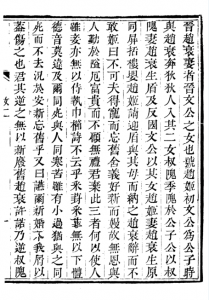 晉趙衰妻者晉文公之女也號趙姬初文公為公子時
與趙衰奔狄狄人入其二女叔隗季隗於公子公以叔
隗妻趙衰生盾及反國文公以其女趙姬妻趙衰生原
同屏括樓嬰趙姬請迎盾與其母而納之趙衰辭而不
敢姬曰不可夫得寵而忘舊舍義好新而嫚故無恩與
人勤於隘厄富貴而不顧無禮君棄此三者何以使人
雖妾亦無以侍執巾櫛詩不云乎采葑采菲無以下體
德音莫違及爾同死與人同寒苦雖有小過猶與之同
死而不去況於安新忘舊乎又曰讌爾新婚不我屑以
蓋傷之也君其逆之無以新廢舊趙衰許諾乃逆叔隗